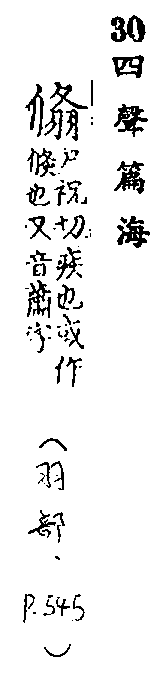 30 四聲篇海
翛
尸祝切疾也或作
倏也又音蕭
（羽部、P.545）